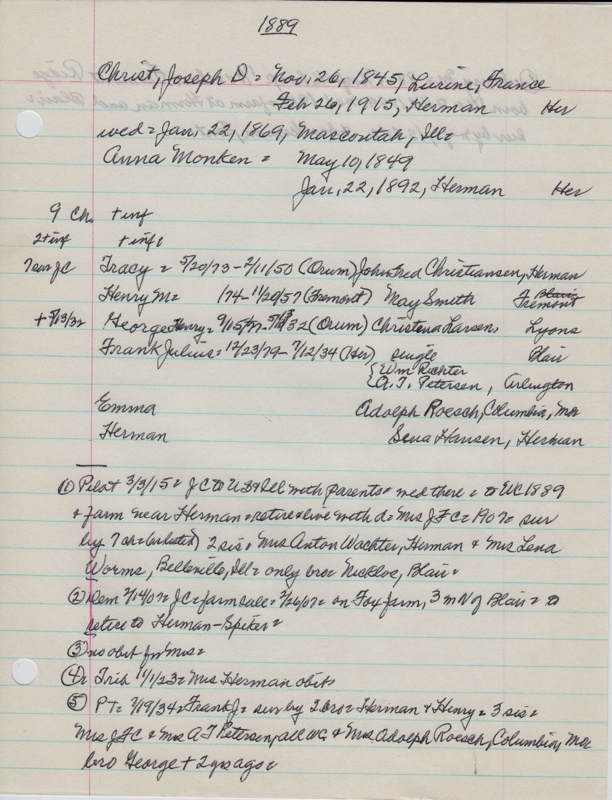 1889
Christ, Joseph D. = Nov. 26, 1845, Lurine, France
Feb 26, 1915, Herman Her
wed = Jan. 22, 1869, Mascoutah, Ill =
Anna Monken = May 10, 1849
Jan. 22, 1892, Herman Her
9 Ch. + inf
2 + inf + inf
7 sur JC Tracy = 5/20/73 - 2/11/50 (Orum) John Fred Christiansen, Herman
Henry M = /74 - 11/20/57 (Fremont) May Smith Fremont
+ 5/13/32 George Henry = 9/15/77 - 5/13/32 (Orum) Christena Larsen, Lyons
Frank Julius = 12/23/79 - 7/12/34 (Her) single Blair
{ Wm Richter
A. T. Petersen, Arlington
Emma Adolph Roesch, Columbia, Mo
Herman Sena Hansen, Herman
① Pilot 3/3/15 = JC to US & Ill with parents = wed there = to WC 1889
+ farm near Herman = retire & live with d = Mrs JFC = 1907 = sur
by 7 ch = (as listed) 2 sis = Mrs Anton Wachter, Herman & Mrs Lena
Worms, Belleville, Ill = only bro = Nicklos, Blair =
② Dem 2/14/07 = JC = farm sale = 2/26/07 = on Fox farm, 3 m N of Blair = to
retire to Herman - Spiker =
③ no obit for Mrs =
④ Trib 11/1/23 = Mrs Herman obit
⑤ PT = 7/19/34 = Frank J = sur by 2 bro = Herman & Henry = 3 sis =
Mrs JFC & Mrs A T Petersen, all WC & Mrs. Adolph Roesch, Columbia, Mo =
bro George + 2 yrs ago =